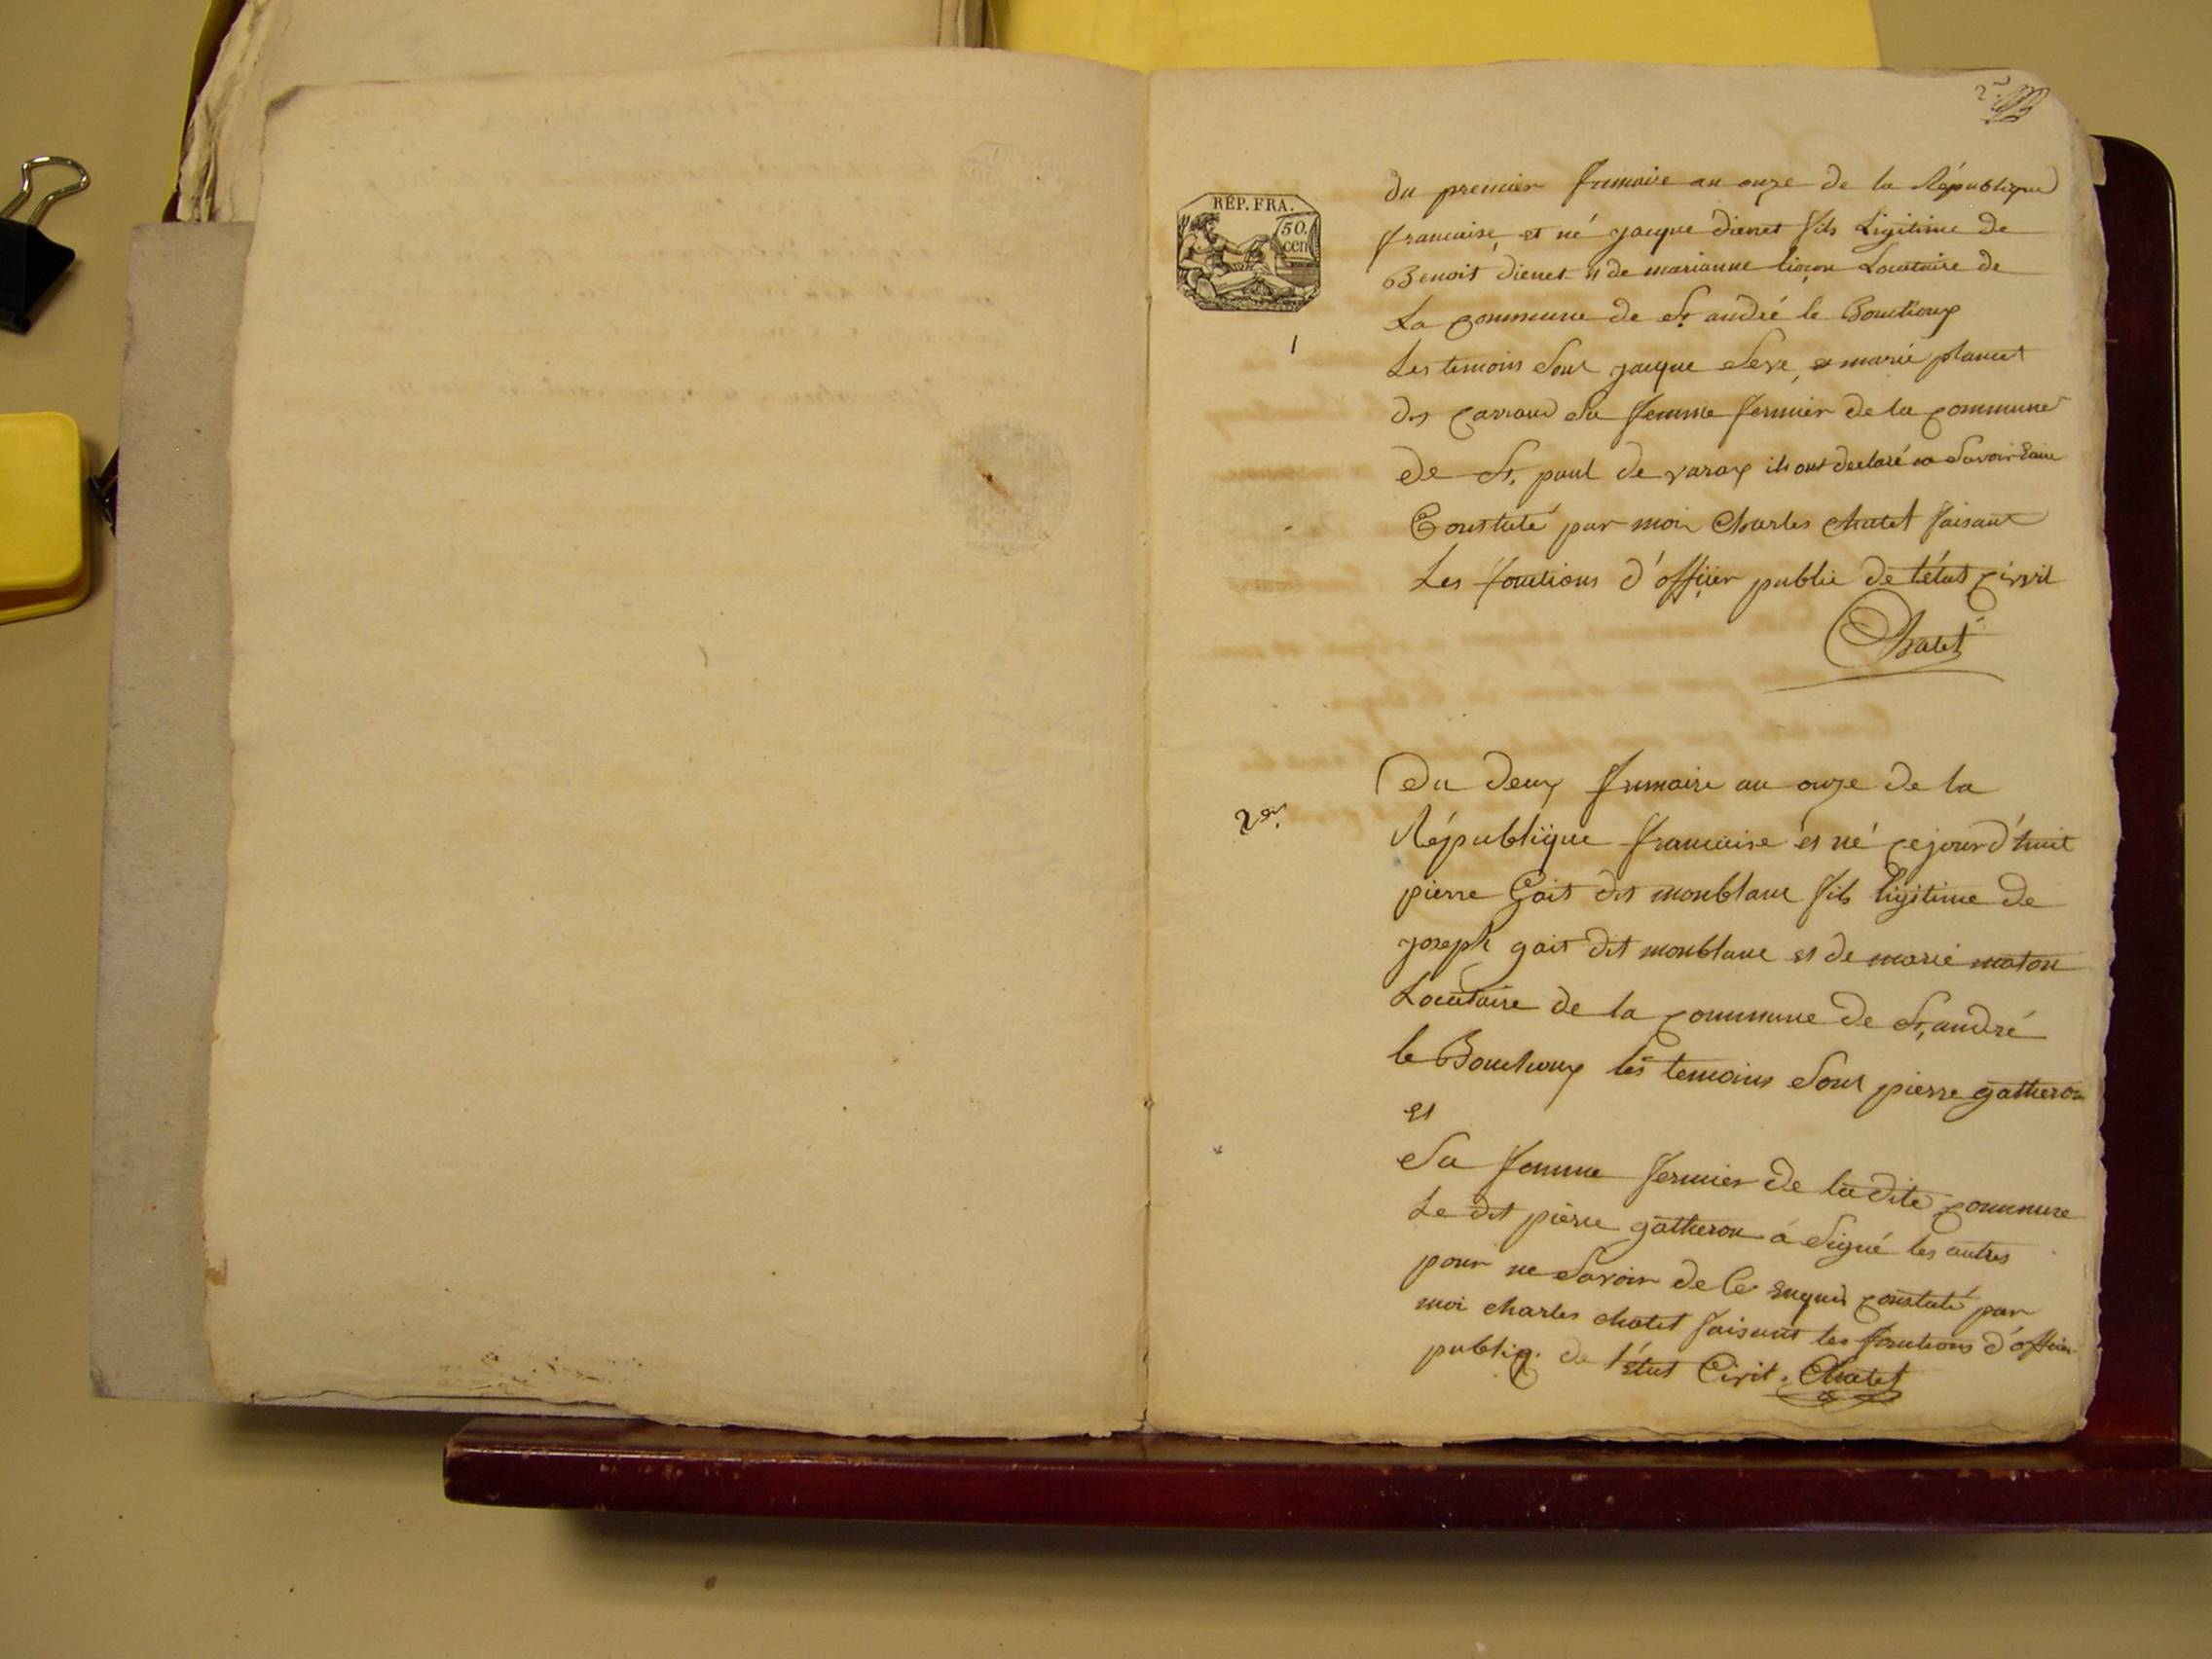 2e
RÉP. FRA.
50.
cen
1
du premier frimaire an onze de la République
francaise, et né jacque dienet fils Ligitime de
Benoit dienet et de marianne Locataire de
La commune de St. andré le Bouchoux
Les temoins sont jacque seve, et marie planet
dit carraud sa femme fermier de la commune
de St. paul de varax ils ont declaré ne savoir
Constaté par moi Charles Chatet faisant
Les fonctions d'officier public de l'état civil
Chatet
2e.
du deux frimaire an onze de la
République francaise et né cejourd'huit
pierre Gait dit monblanc fils ligitime de
joseph gait dit monblanc et de marie maton
Locataire de la commune de St, andré
le Bouchoux les temoins sont pierre gatheron
et
sa femme fermier de la dite commune
Le dit pierre gatheron a signé les autres
pour ne savoir de ce enquis constaté par
moi charles chatet faisant les fonctions d'officier
publiq. de l'état Civil. Chatet